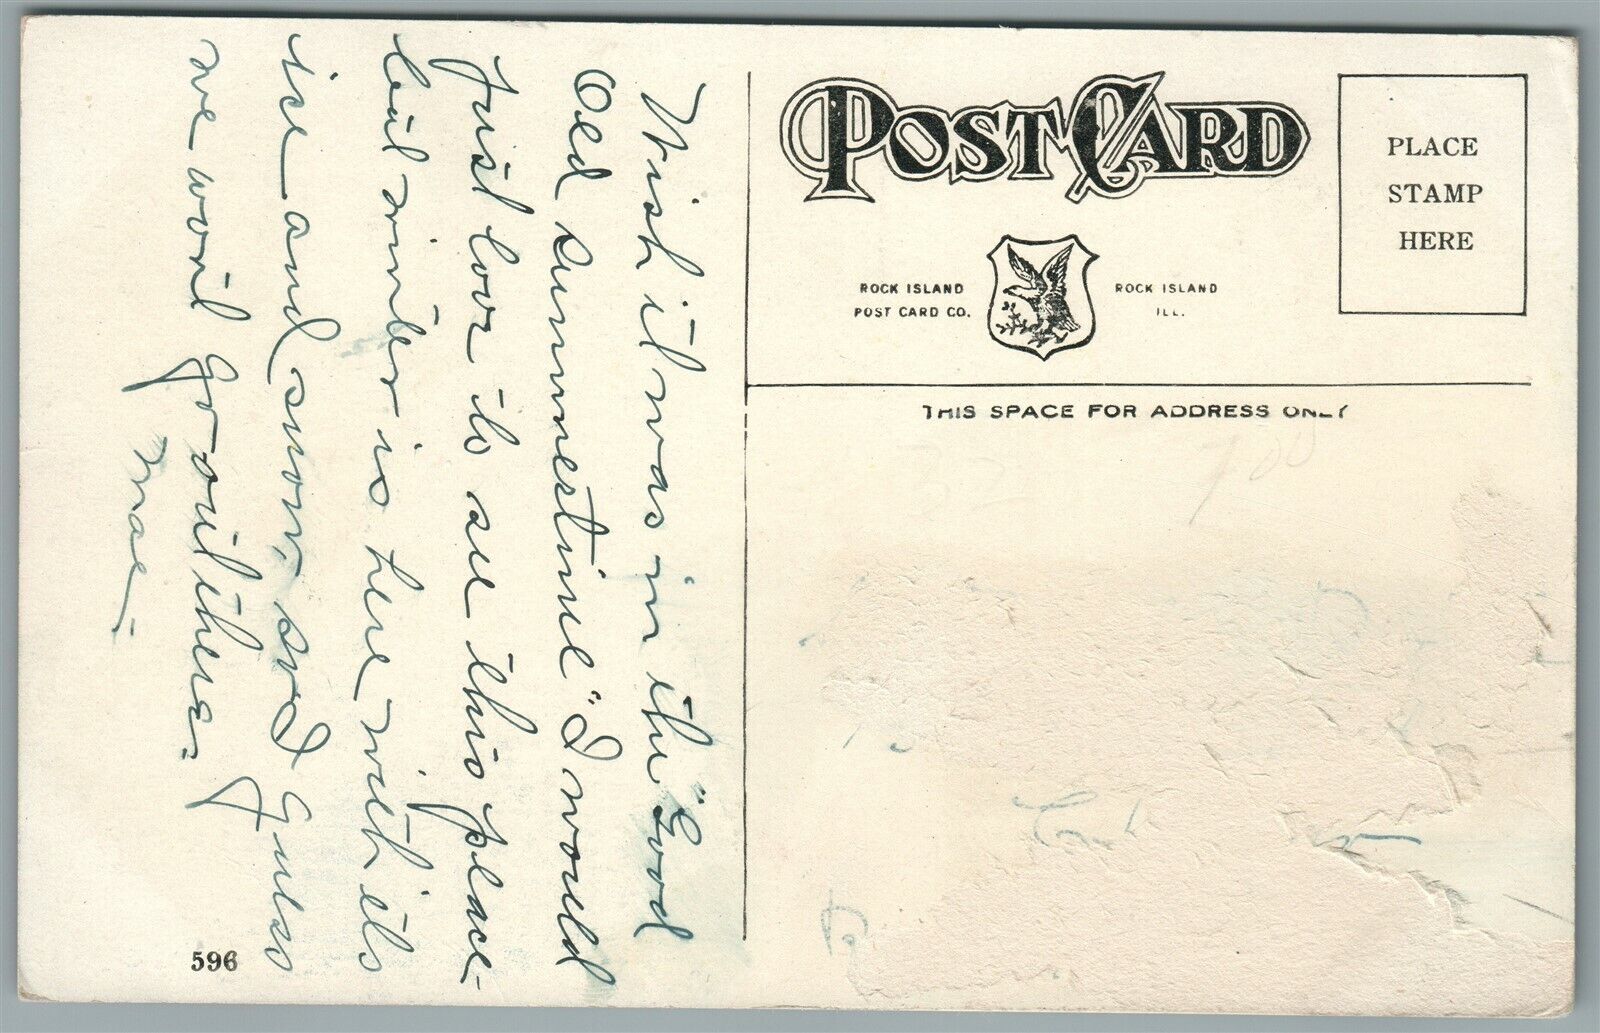 Wish it was in the "Good
Old Summertime" I would
Just love to see this place-
but winter is here with its
ice and snow, so I guess
we wont go out there-
Mae-
596
POST CARD
PLACE
STAMP
HERE
ROCK ISLAND
POST CARD CO.
ROCK ISLAND
ILL.
THIS SPACE FOR ADDRESS ONLY